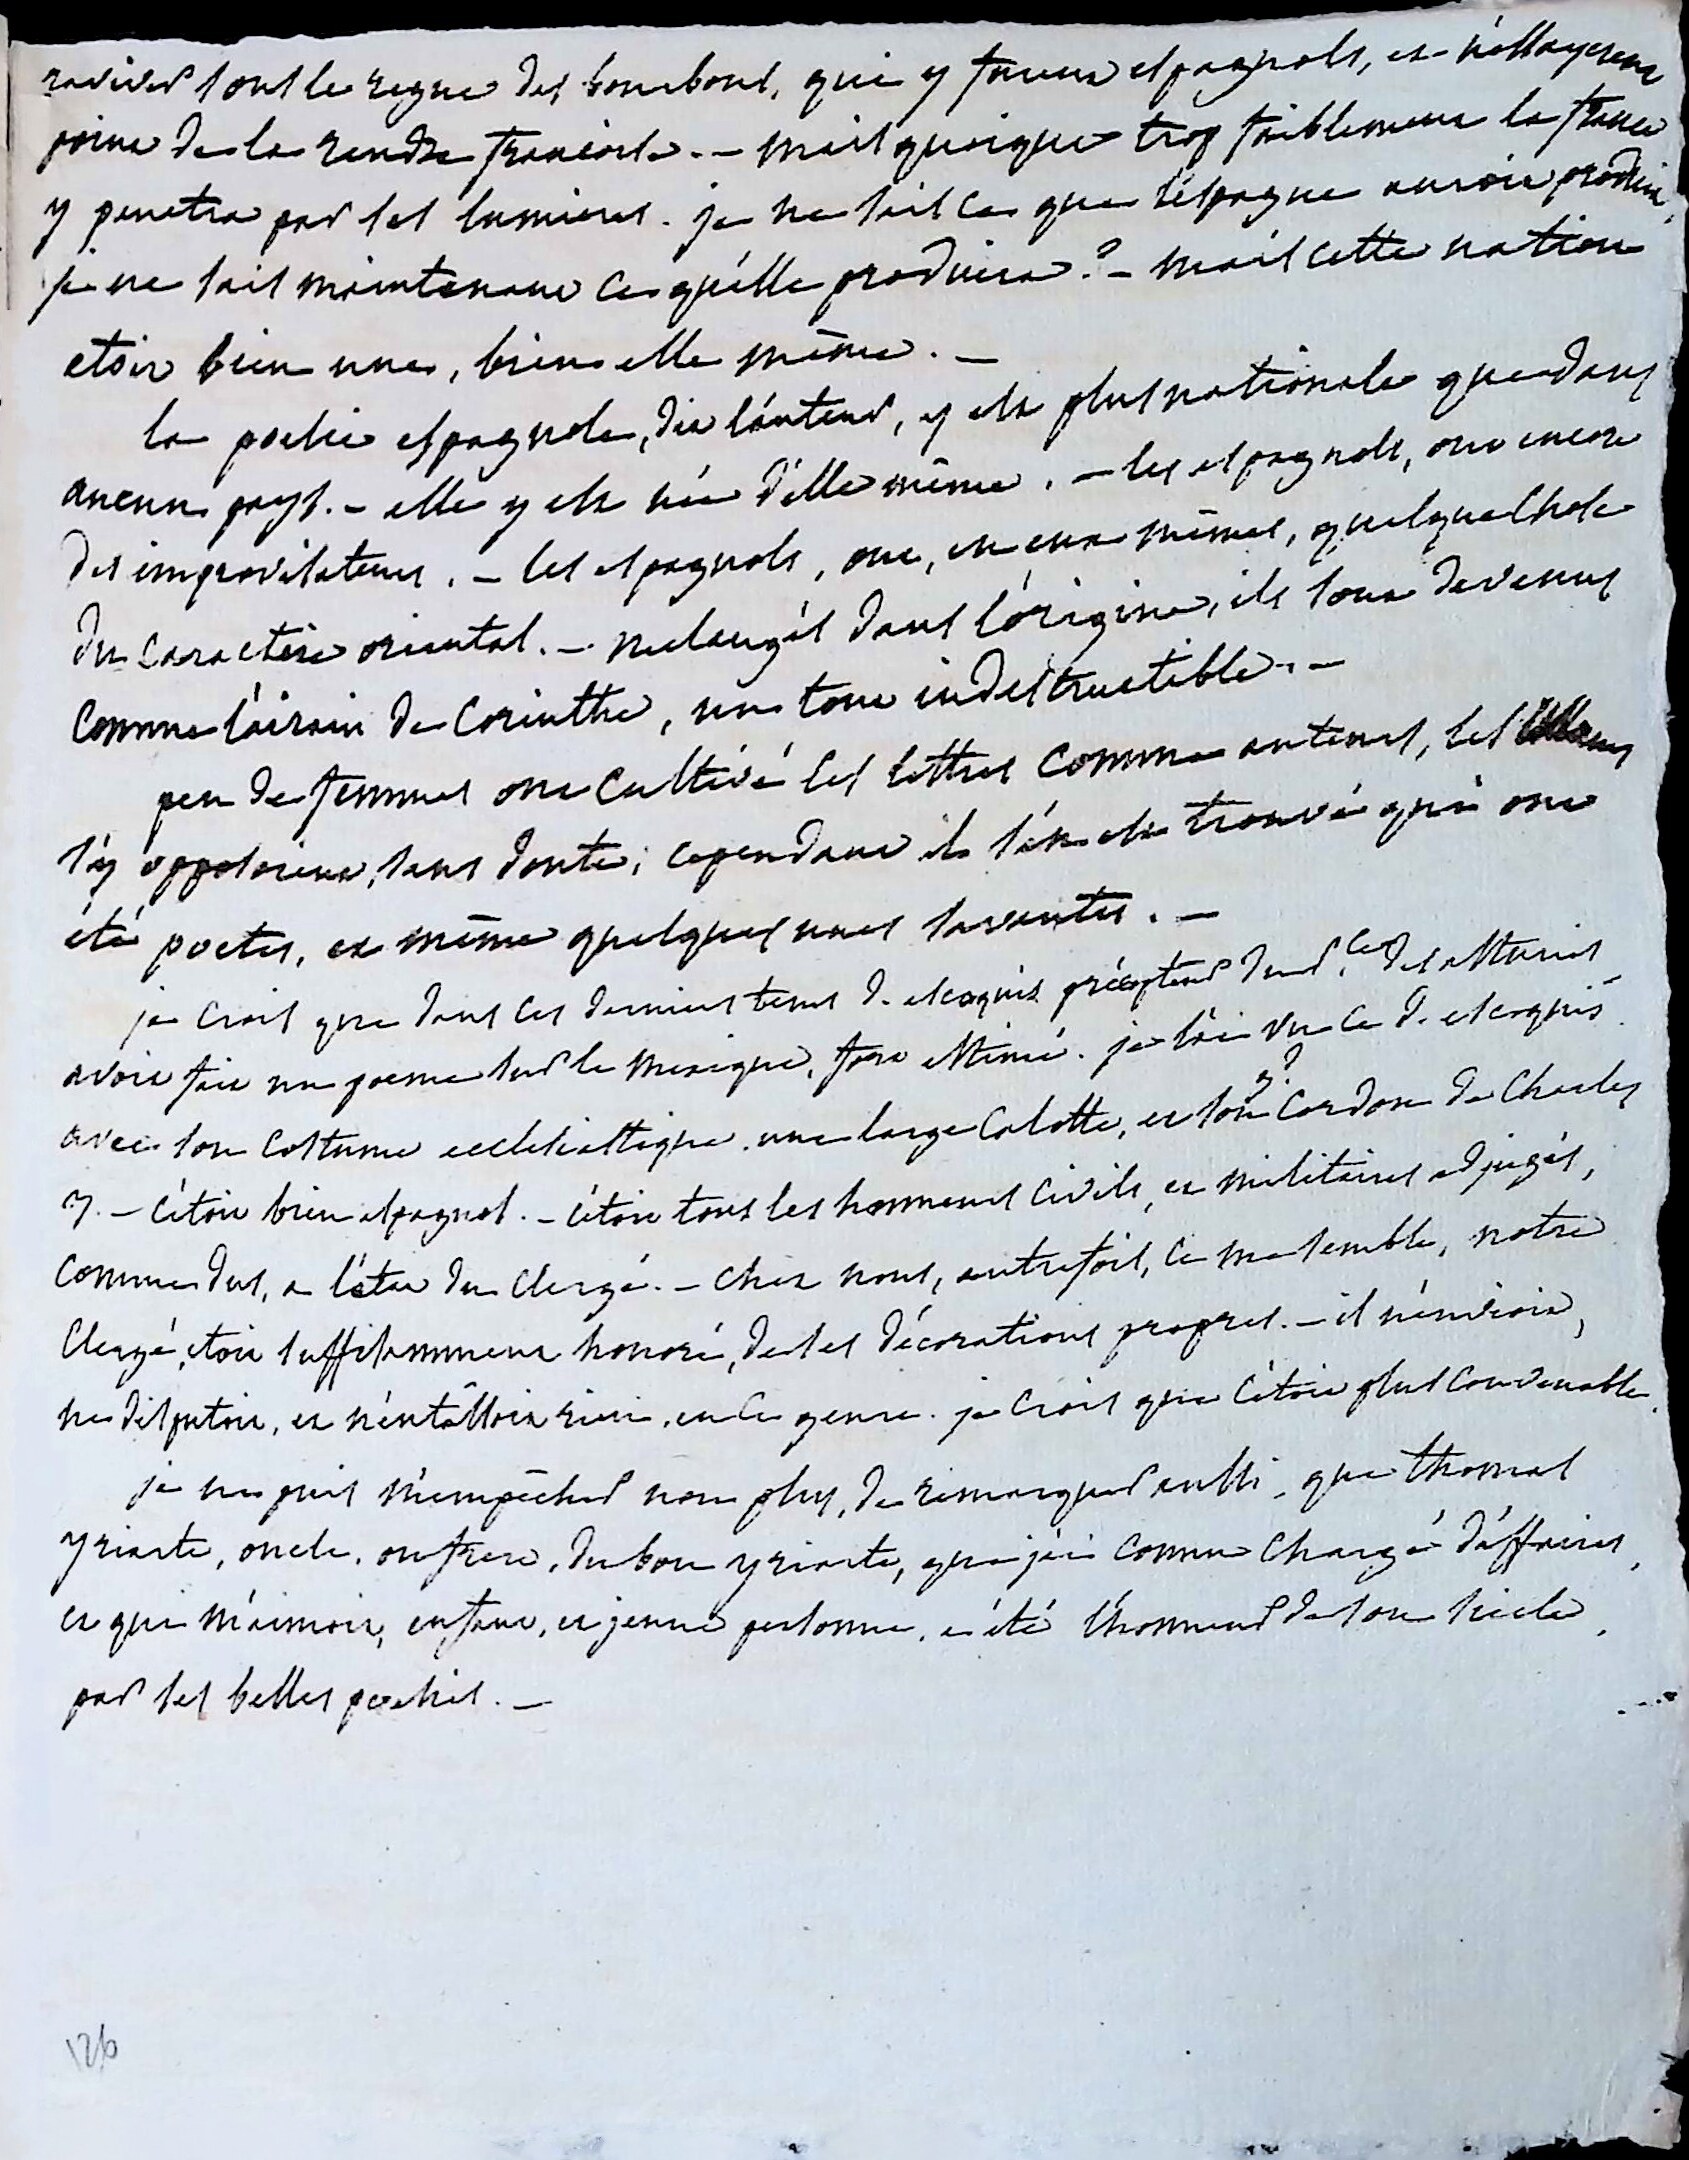 raviver sous le regne des bourbons, qui y furent espagnols, et n'essayerent
point de la rendre françoise. - mais quoique trop foiblement la france
y penetra par ses lumieres. je ne sais ce que l'espagne auroit produit,
je ne sais maintenant ce qu'elle produira ? - mais cette nation
etoit bien une, bien elle même. -
la poesie espagnole, dit l'auteur, y est plus nationale que dans
aucun pays. - elle y est née d'elle même. - les espagnols, ont encore
des improvisateurs. - les espagnols, ont, en eux mêmes, quelque chose
du caractere oriental. - melangés dans l'origine, ils sont devenus
comme l'airain de Corinthe, un tout indestructible. -
peu de femmes ont cultivé les lettres comme auteurs, les
s'y opposoient, sans doute; cependant il s'en est trouvé qui ont
été poetes, et même quelques unes savantes. -
je crois que dans ces derniers tems d. escoquiz précepteur du p.ce des asturies
avoit fait un poeme sur le mexique, fort estimé. je l'ai vu ce d. escoquis
avec son costume ecclesiastique. une large calotte, et son g.d cordon de Charles
3. - c'étoit bien espagnol. - c'étoit tous les honneurs civils, et militaires adjugés,
comme dus, a l'état du clergé. - chez nous, autrefois, ce me semble, notre
clergé, étoit suffisamment honoré, de ses décorations propres. - il n'envioit,
ne disputoit, et n'entâssoit rien, en ce genre. je crois que c'étoit plus convenable.
je ne puis m'empêcher non plus, de remarquer aussi, que thomas
yriarte, oncle, ou frere, du bon yriarte, que j'ai connu chargé d'affaires,
et qui m'aimoit, enfant, et jeune personne, a été l'honneur de son siecle,
par ses belles poesies. -
126